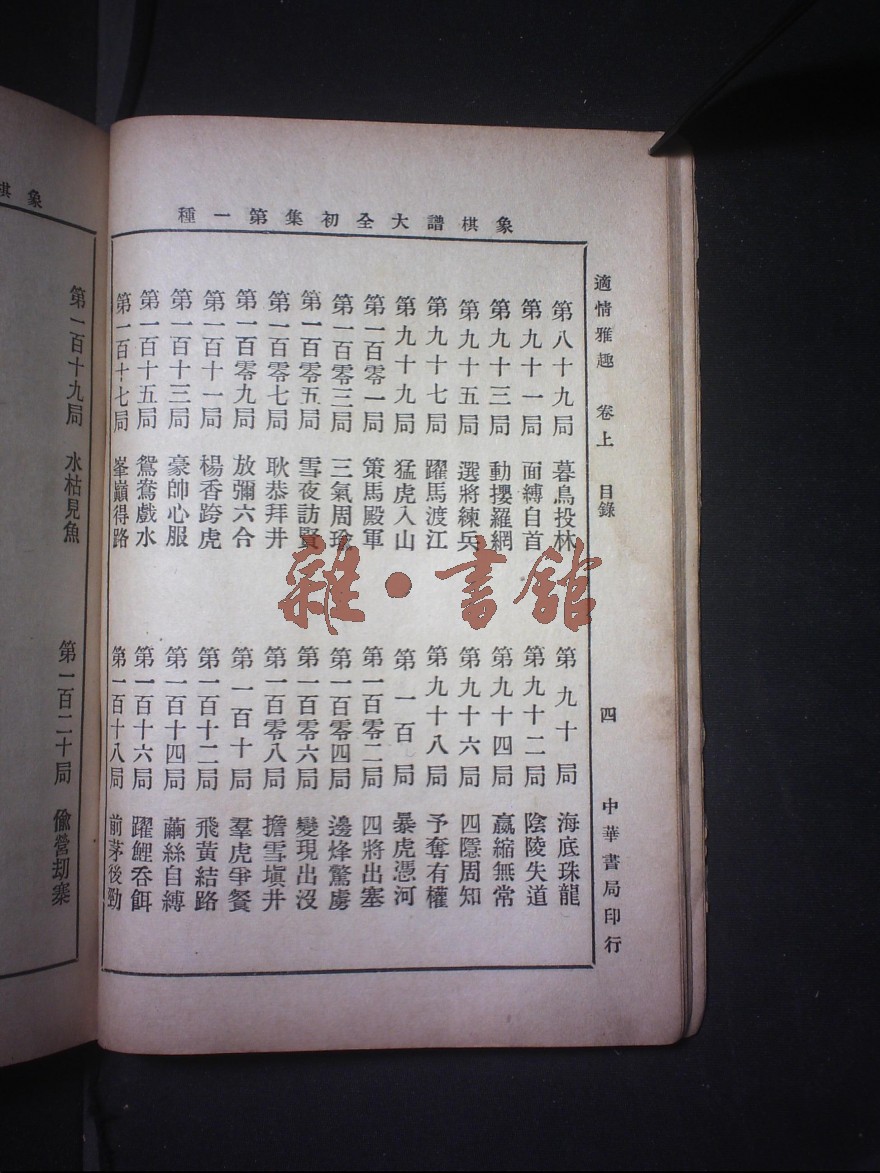 象棋譜大全初集第一種
適情雅趣 卷上 目錄 四 中華書局印行
第八十九局 暮鳥投林 第九十局 海底珠龍
第九十一局 面縛自首 第九十二局 陰陵失道
第九十三局 動攖羅網 第九十四局 嬴縮無常
第九十五局 選將練兵 第九十六局 四隱周知
第九十七局 躍馬渡江 第九十八局 予奪有權
第九十九局 猛虎入山 第一百局 暴虎憑河
第一百零一局 策馬殿軍 第一百零二局 四將出塞
第一百零三局 三氣周瑜 第一百零四局 邊烽驚虜
第一百零五局 雪夜訪賢 第一百零六局 變現出沒
第一百零七局 耿恭拜井 第一百零八局 擔雪塡井
第一百零九局 放彌六合 第一百十局 羣虎爭餐
第一百十一局 楊香跨虎 第一百十二局 飛黃結路
第一百十三局 豪帥心服 第一百十四局 繭絲自縛
第一百十五局 鴛鴦戲水 第一百十六局 躍鯉吞餌
第一百十七局 峯巔得路 第一百十八局 前茅後勁
象棋
第一百十九局 水枯見魚 第一百二十局 偸營刧寨
雜·書館